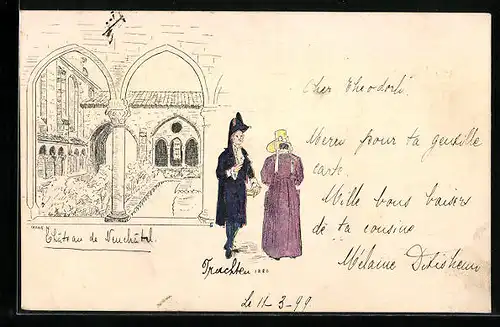 Cher Theodorli.
Merci pour ta gentille
carte.
Mille bons baisers
de ta cousine
Mélanie Ditisheim
Château de Neuchâtel.
Trachten 1820
Le 11-3-99